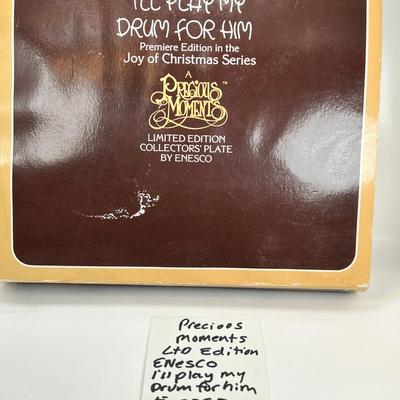 I'LL PLAY MY
DRUM FOR HIM
Premiere Edition in the
Joy of Christmas Series
A
PRECIOUS
MOMENTS™
LIMITED EDITION
COLLECTORS' PLATE
BY ENESCO
Precious
moments
LTD Edition
ENesco
I'll play my
Drum for him